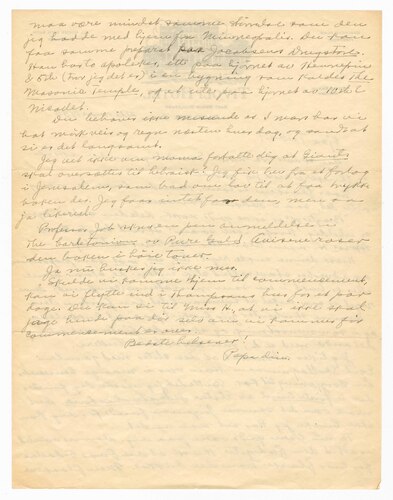 maa være mindst samme Størrelse som den
jeg hadde med hjem fra Minneapolis. Du kan
faa samme præpart paa Jacobsens Drugstore.
Han har to apoteker, ett paa hjørnet av Hennepin
& 6th (tror jeg det er) i en bygning som kaldes the
Masonic Temple, og et ute paa hjørnet av 10th &
Nicollet.
Du behøver ikke misunde os. I mars har vi
hat mørk veir og regn næsten hver dag, og saadant
er det langsomt.
Jeg vet ikke om mama fortalte dig at Giants
skal oversættes til hebraisk? Jeg fik brev fra et forlag
i Jerusalem, som bad om lov til at faa trykke
boken der. Jeg faar intet for den, men
ja likevel.
Professor har en pen anmeldelse i
The Carletonian av Pure Gold. Aviserne roser
den boken i høie toner.
Ja nu husker jeg ikke mer.
Skulde vi komme hjem til commencement,
kan vi flytte ind i Thompsons hus for et par
dage. Du kan si til Miss H. at vi ikke skal
jage hende paa dør selv om vi kommer før
commencement er over.
Bedste helsener!
Papa din.